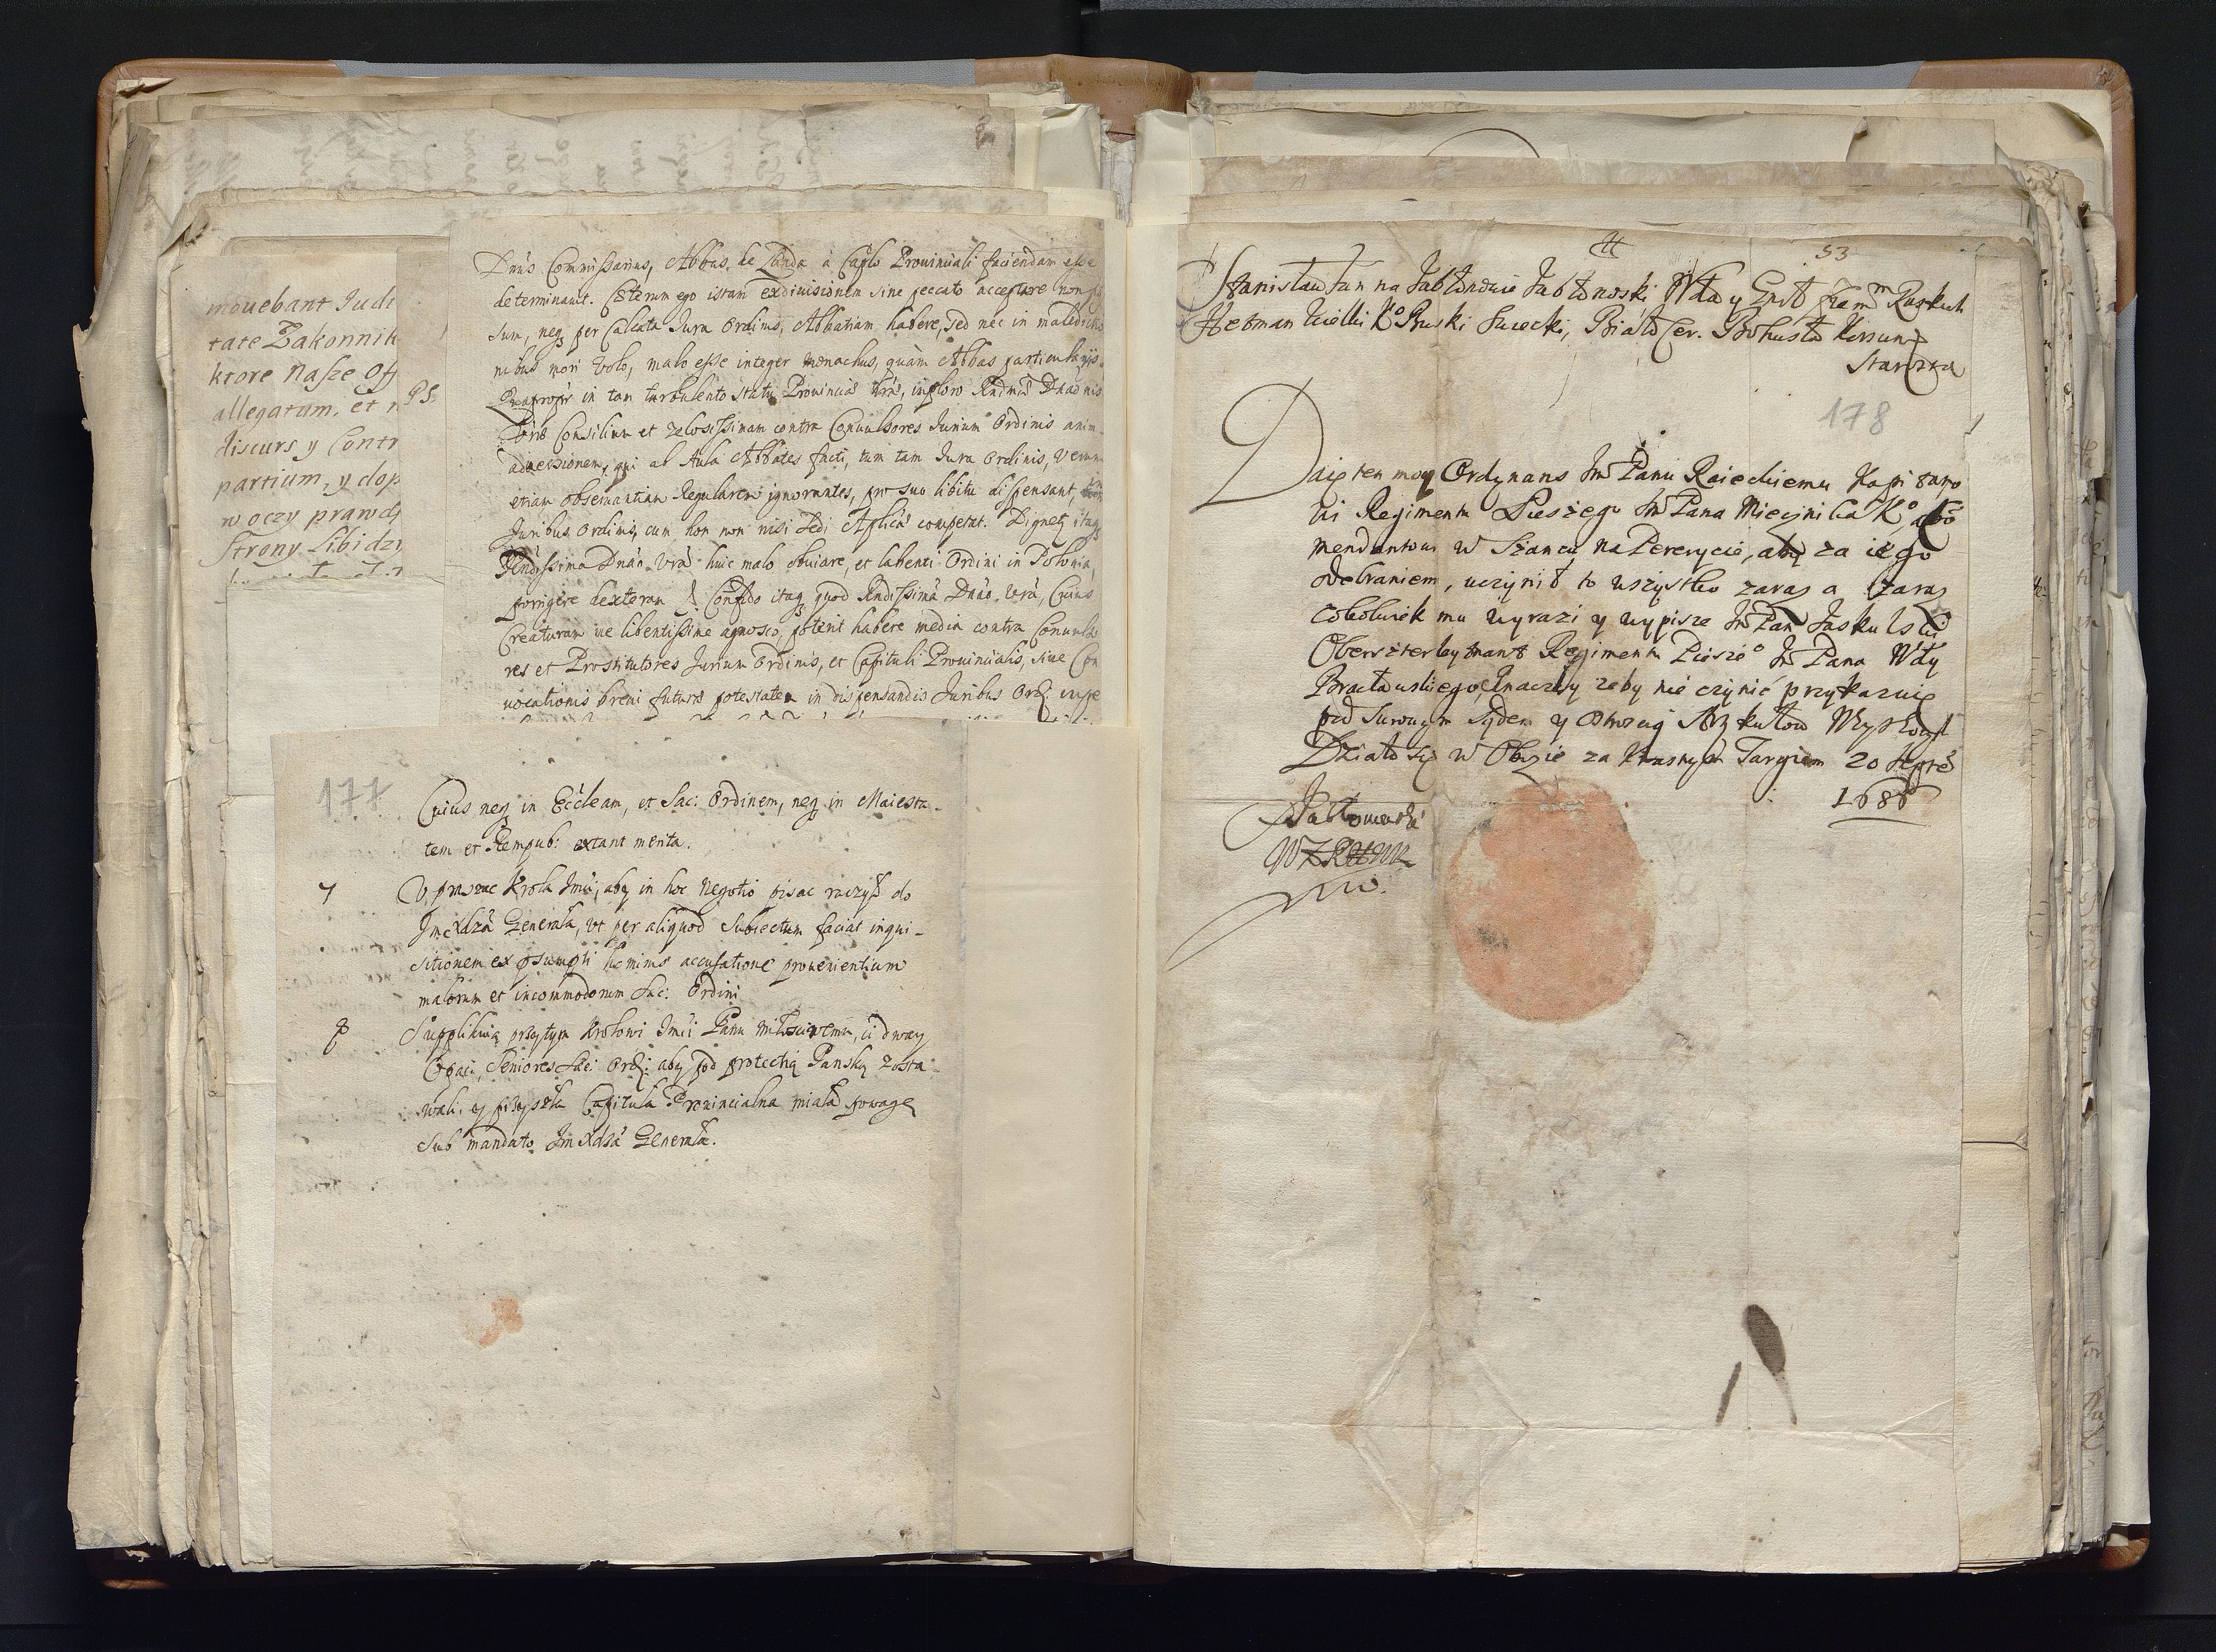 mouebant Judi
tate Zakonnik
ktore nasze Of
allegatum, et
discurs y Contr
partium, y dop
w oczy prawdy
strony Libidzy
P S.
Dnus Commissarius, Abbas de Landa a Caplo Prouinciali faciendam esse
determinauit. Cæterum ego istam exdiuisionem sine peccato acceptare non
sum, neq per Calcata Jura Ordinis, Abbatiam habere, sed nec in maledictio
nibus mori volo, malo esse integer Monachus, quàm Abbas particularis.
Quapropr in tam turbulento statu Prouinciæ nræ, imploro Rndmæ Dnaonis
Vræ Consilium et zelosissimam contra Conuulsores Jurium Ordinis anim-
aduersionem, qui ab Aula Abbates facti, tum tam Jura Ordinis, verum
etiam obseruantiam Regularem ignorantes, pro suo libitu dispensant, in
Juribus Ordinis, cum hoc non nisi Sedi Aplicæ competat. Dignetr itaq
Rndissima Dnao Vra huic malo obuiare, et labenti Ordini in Polonia,
porrigere dexteram. Confido itaq quod Rndissima Dnao Vra, Cuius
Creaturam me libentissime agnosco, poterit habere media contra Conuulso
res et Prostitutores Jurium Ordinis, et Capituli Prouincialis, siue Con
uocationis breui futuræ potestatem in dispensandis Juribus Ord: suspe
177
Cuius neq in Eccleam, et Sac: Ordinem, neq in Maiesta-
tem et Rempub: extant merita.
7 Vpraszac Krola Jmci, aby in hoc negotio pisac raczył do
Jmc Xdza Generała, vt per aliquod Subiectum faciat inqui-
sitionem ex præsumpti hominis accusatione prouenientium
malorum et incommodorum Sac: Ordini
8 Supplikuią przytym Krolowi Jmci Panu Miłosciwemu, ci dway
Opaci, Seniores Sac: Ord: aby pod protectią Panską zosta-
wali, y przyszła Capituła Prouincialna miała powagę
sub mandato Jm Xdza Generała.
53
Stanisław Jan na Jabłonowie Jabłonoski Wda y Gnrł Ziem Ruskich
Hetman Wielki Ko Ruski Swiecki, Białocer. Bohusła Korsun
Starosta
178
Daię ten moy Ordynans Jm Panu Raieckiemu Kapitano
wi Regimentu Pieszego Jm Pana Miecznika Ko a Co
mendantowi w Szancu na Pererycie, aby za iego
odebraniem, uczynił to wszystko zaraz a zaraz
cokolwiek mu wyrazi y wypisze Jm Pan Jaskulski
Oberszterleytnant Regimentu Piesze° Jm Pana Wdy
Bracławskiego, Jnaczey zeby nie czynic przykazuię
pod surowym sądem y Obwozą Artykułow Woyskowych
Działo się w Obozie za Krasnym Targiem 20 Septr
1686
Jabłonowski
WZRHWK